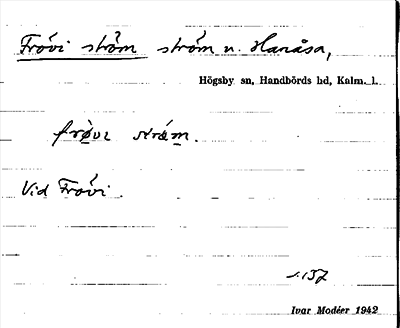 Frövi ström ström n. Hanåsa,
Högsby sn, Handbörds hd, Kalm. l.
frøvi strøm.
Vid Frövi.
s. 137
Ivar Modéer 1942